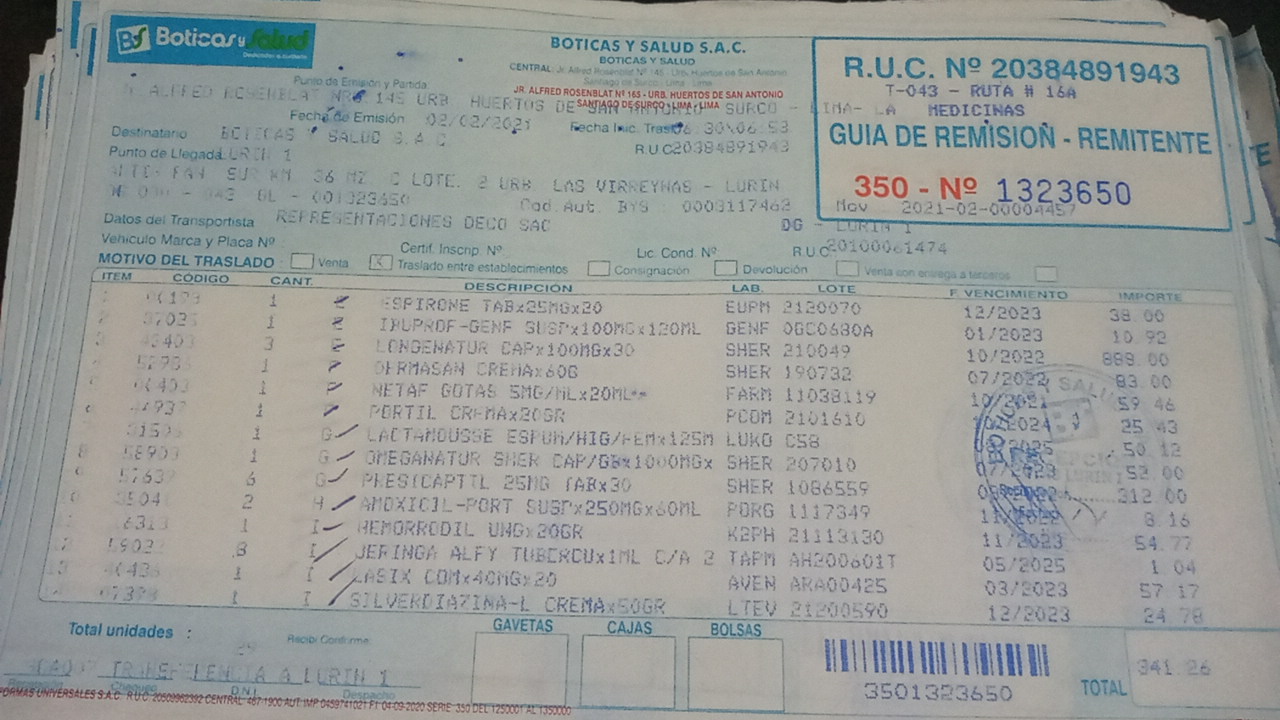 BS Boticas y Salud
BOTICAS Y SALUD S.A.C.
BOTICAS Y SALUD
CENTRAL: Jr. Alfred Rosenblat Nº 145 - Urb. Huertos de San Antonio
Santiago de Surco - Lima - Lima
JR. ALFRED ROSENBLAT Nº 165 - URB. HUERTOS DE SAN ANTONIO
SANTIAGO DE SURCO - LIMA - LIMA
R.U.C. Nº 20384891943
T-043 - RUTA # 16A
MEDICINAS
GUIA DE REMISIÓN - REMITENTE
350 - Nº 1323650
Mov 2021-02-00004457
Punto de Emisión y Partida
ALFRED ROSENBLAT NRO 145 URB HUERTOS DE SAN ANTONIO SURCO - LIMA- LA
Fecha de Emisión 02/02/2021 Fecha Inic. Tras 06:53
Destinatario BOTICAS Y SALUD S.A.C R.U.C 20384891943
Punto de Llegada LURIN 1
SUR KM 36 MZ. C LOTE. 2 URB LAS VIRREYNAS - LURIN
043 GL - 001323650 Cod.Aut. BYS : 0003117462
Datos del Transportista REPRESENTACIONES DECO SAC DG - LURIN 1
Vehículo Marca y Placa Nº Certif. Inscrip. Nº Lic. Cond. Nº R.U.C 20100061474
MOTIVO DEL TRASLADO Venta Traslado entre establecimientos Consignación Devolución Venta con entrega a terceros
ITEM CÓDIGO CANT. DESCRIPCIÓN LAB. LOTE F. VENCIMIENTO IMPORTE
1 ESPIRONE TABx25MGx20 EUPM 2120070 12/2023 38.00
1 IBUPROF-GENF SUSPx100MGx120ML GENF 0GC0680A 01/2023 10.92
3 LONGENATUR CAPx100MGx30 SHER 210049 10/2022 889.00
1 DERMASAN CREMAx60G SHER 190732 07/2022 83.00
1 P NETAF GOTAS 5MG/MLx20ML FARM 11038119 10/2021 59.46
1 P PORTIL CREMAx20GR PCOM 2101610 10/2024 25.43
1 G LACTAMOUSSE ESPUM/HIG/FEMx125M LUKO C58 50.12
1 G OMEGANATUR SHER CAP/GBx1000MGx SHER 207010 07/2023 52.00
6 G PRESICAPTIL 25MG TABx30 SHER 1086559 312.00
2 H AMOXICIL-PORT SUSPx250MGx60ML PORG 1117349 8.16
1 I HEMORRODIL UNGx20GR K2PH 21113130 11/2023 54.77
8 I JERINGA ALFY TUBERCUx1ML C/A 2 TAPM AH200601T 05/2025 1.04
1 I LASIX COMx40MGx20 AVEN ARA00425 03/2023 57.17
1 I SILVERDIAZINA-L CREMAx50GR LTEV 21200590 12/2023 24.78
Total unidades : Recibí Conforme GAVETAS CAJAS BOLSAS
TRANSFERENCIA A LURIN 1
D.N.I. Despacho
3501323650
TOTAL 341.26
FORMAS UNIVERSALES S.A.C. R.U.C. 20509982392 CENTRAL: 467-1900 AUT. IMP. 0459741021 F.I. 04-09-2020 SERIE: 350 DEL 1250001 AL 1350000